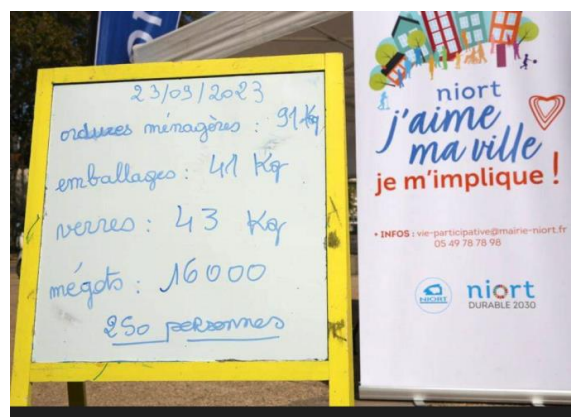 23/09/2023
ordures ménagères : 91 Kg
emballages : 41 Kg
verres : 43 Kg
mégots : 16000
250 personnes
niort
j'aime
ma ville
je m'implique !
• INFOS : vie-participative@mairie-niort.fr
05 49 78 78 98
NIORT
niort
DURABLE 2030